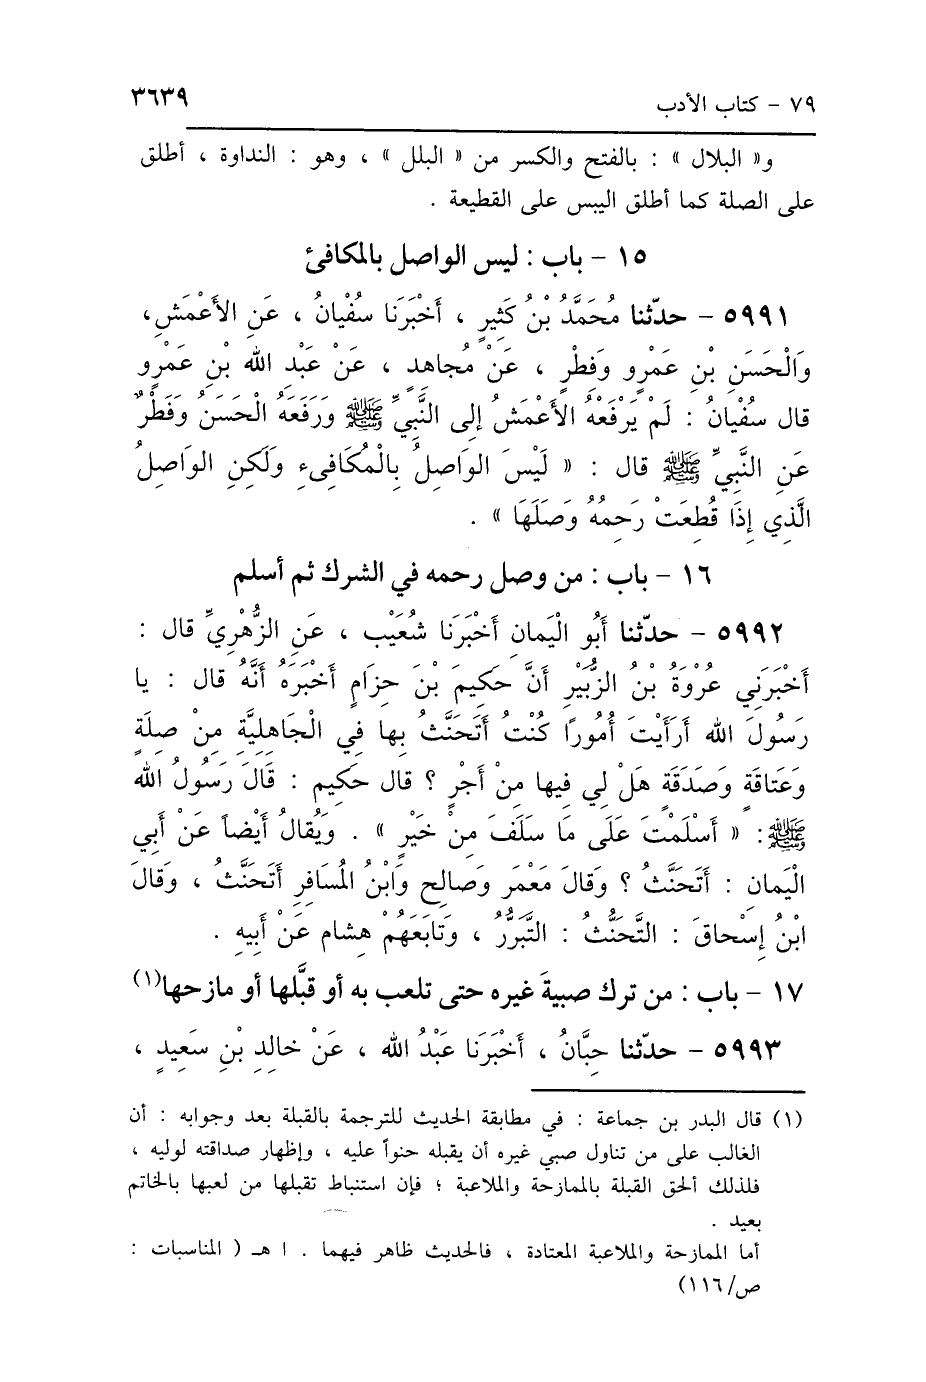 ٧٩ - كتاب الأدب ٣٦٣٩
و« البلال » : بالفتح والكسر من « البلل » ، وهو : النداوة ، أطلق
على الصلة كما أطلق اليبس على القطيعة .
١٥ - باب : ليس الواصل بالمكافئ
٥٩٩١ - حدّثنا مُحَمَّدُ بْنُ كَثِيرٍ ، أَخْبَرَنا سُفْيانُ ، عَنِ الأَعْمَشِ،
وَالْحَسَنِ بْنِ عَمْرٍو وَفِطْرٍ ، عَنْ مُجاهِدٍ ، عَنْ عَبْدِ الله بْنِ عَمْرٍو
قال سُفْيانُ : لَمْ يَرْفَعْهُ الأَعْمَشُ إلى النَّبِيِّ ﷺ وَرَفَعَهُ الْحَسَنُ وَفِطْرٌ
عَنِ النَّبِيِّ ﷺ قال : « لَيْسَ الوَاصِلُ بِالْمُكَافِىءِ وَلَكِنِ الوَاصِلُ
الَّذِي إِذَا قُطِعَتْ رَحِمُهُ وَصَلَهَا » .
١٦ - باب : من وصل رحمه في الشرك ثم أسلم
٥٩٩٢ - حدّثنا أَبُو الْيَمانِ أَخْبَرَنا شُعَيْب ، عَنِ الزُّهْرِيِّ قال :
أَخْبَرَنِي عُرْوَةُ بْنُ الزُّبَيْرِ أَنَّ حَكِيمَ بْنَ حِزَامٍ أَخْبَرَهُ أَنَّهُ قال : يا
رَسُولَ الله أَرَأَيْتَ أُمُورًا كُنْتُ أَتَحَنَّثُ بها فِي الْجَاهِلِيَّةِ مِنْ صِلَةٍ
وَعَتاقَةٍ وَصَدَقَةٍ هَلْ لِي فِيها مِنْ أَجْرٍ ؟ قال حَكِيم : قَالَ رَسُولُ الله
ﷺ: « أَسْلَمْتَ عَلَى مَا سَلَفَ مِنْ خَيْرٍ » . وَيُقالُ أَيْضاً عَنْ أَبِي
الْيَمانِ : أَتَحَنَّثُ ؟ وَقالَ مَعْمَر وَصالِح وَابْنُ الْمُسافِرِ أَتَحَنَّثُ ، وَقالَ
ابْنُ إِسْحاقَ : التَّحَنُّثُ : التَّبَرُّرُ ، وَتَابَعَهُمْ هِشام عَنْ أَبِيهِ .
١٧ - باب : من ترك صبيةَ غيره حتى تلعب به أو قبَّلها أو مازحها(١)
٥٩٩٣ - حدّثنا حِبَّانُ ، أَخْبَرَنا عَبْدُ الله ، عَنْ خالِدِ بْنِ سَعِيدٍ ،
(١) قال البدر بن جماعة : في مطابقة الحديث للترجمة بالقبلة بعد وجوابه : أن
الغالب على من تناول صبي غيره أن يقبله حنواً عليه ، وإظهار صداقته لوليه ،
فلذلك ألحق القبلة بالممازحة والملاعبة ؛ فإن استنباط تقبلها من لعبها بالخاتم
بعيد .
أما الممازحة والملاعبة المعتادة ، فالحديث ظاهر فيهما . ا هـ ( المناسبات :
ص/١١٦)